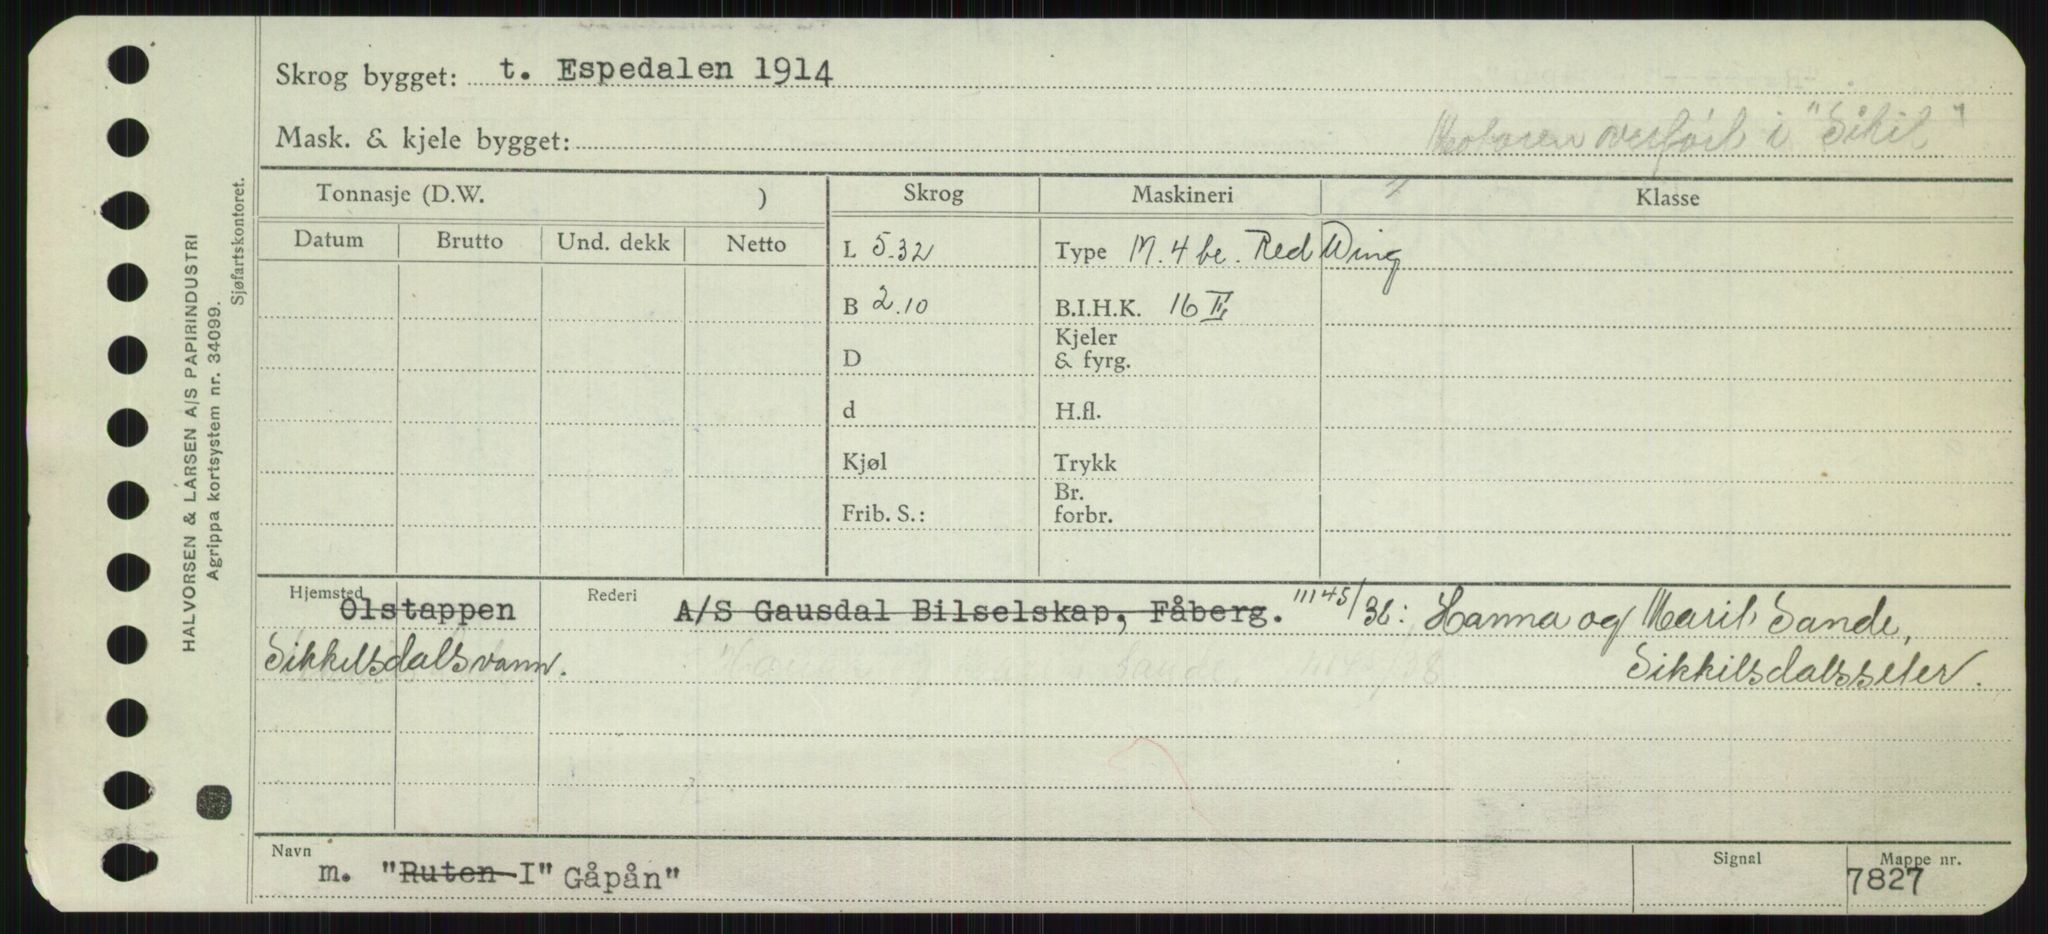 Skrog bygget: t. Espedalen 1914
Mask. & kjele bygget:
Motoren overført i "Sikil"
Tonnasje (D.W. )
Skrog
Maskineri
Klasse
Datum Brutto Und. dekk Netto
L 5.32
Type M. 4 be. Red Wing
B 2.10
B.I.H.K. 16
D
Kjeler
& fyrg.
d
H.fl.
Kjøl
Trykk
Frib. S.:
Br.
forbr.
Hjemsted
Rederi
Olstappen
A/S Gausdal Bilselskap, Fåberg. 11145/38: Hanna og Marit Sande,
Sikkilsdalsvann.
Sikkilsdalsseter.
Navn
m. "Ruten I" Gåpån"
Signal
Mappe nr.
7827
HALVORSEN & LARSEN A/S PAPIRINDUSTRI
Agrippa kortsystem nr. 34099.
Sjøfartskontoret.